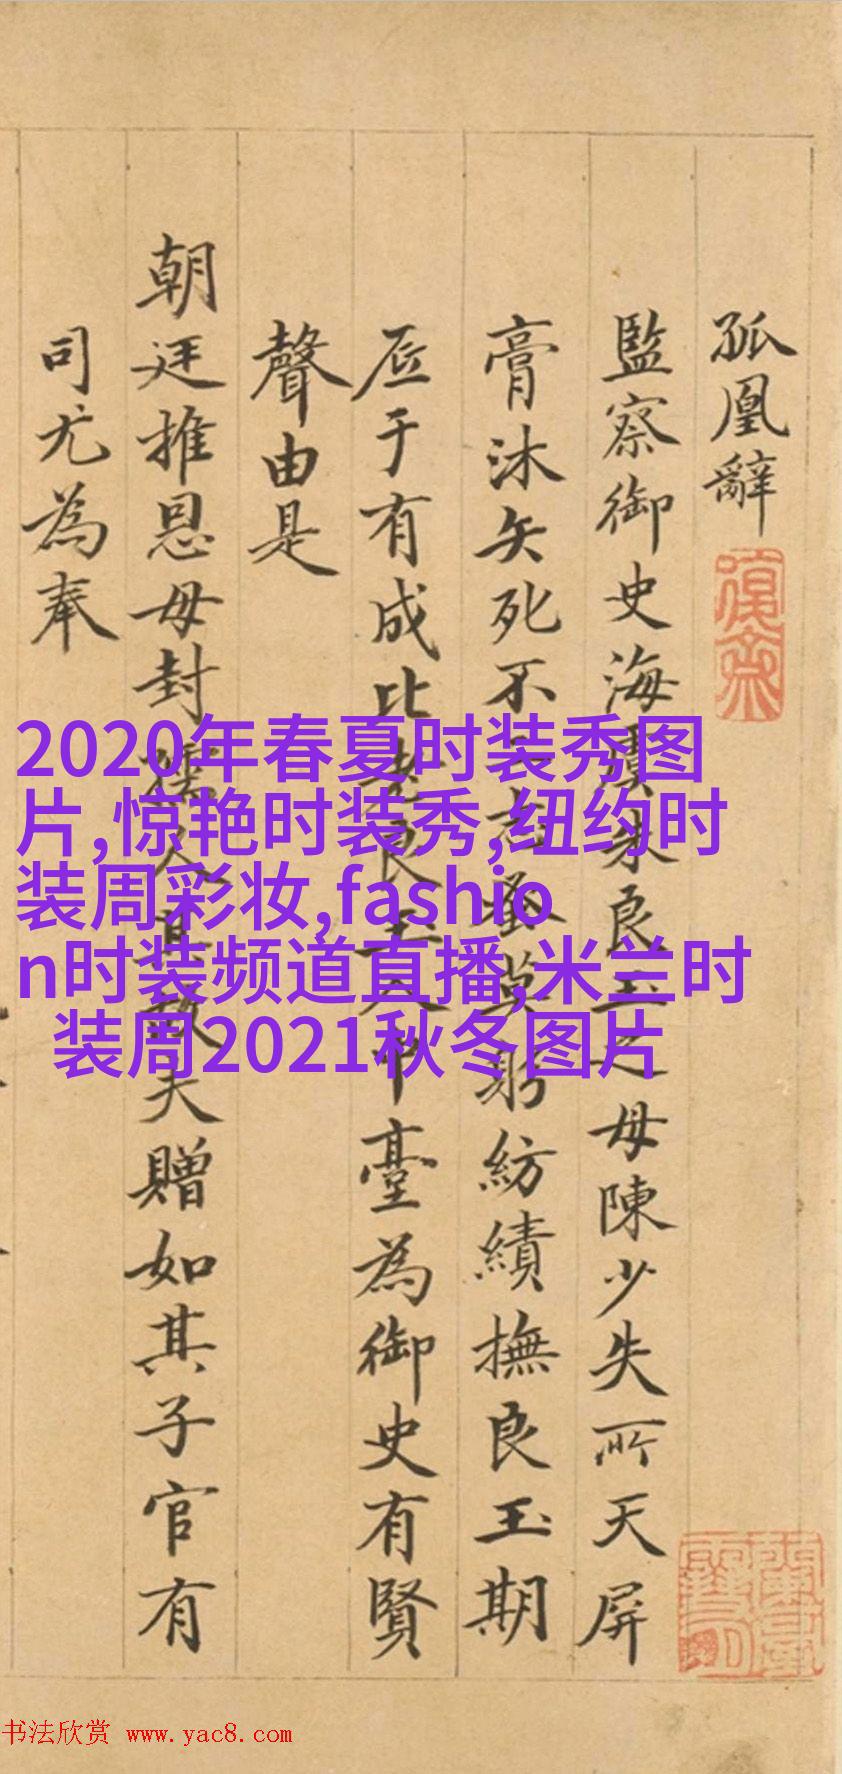 孤凰辭
監察御史海虞朱良玉之母陳少失所天屏
膏沐矢死不志蚤莫躬紡績撫良玉期
厎于有成比良玉入中臺為御史有賢
聲由是
朝廷推恩母封孺人其故夫贈如其子官有
司尤為奉
2020年春夏时装秀图
片,惊艳时装秀,纽约时
装周彩妆,fashio
n时装频道直播,米兰时
装周2021秋冬图片
书法欣赏 www.yac8.com